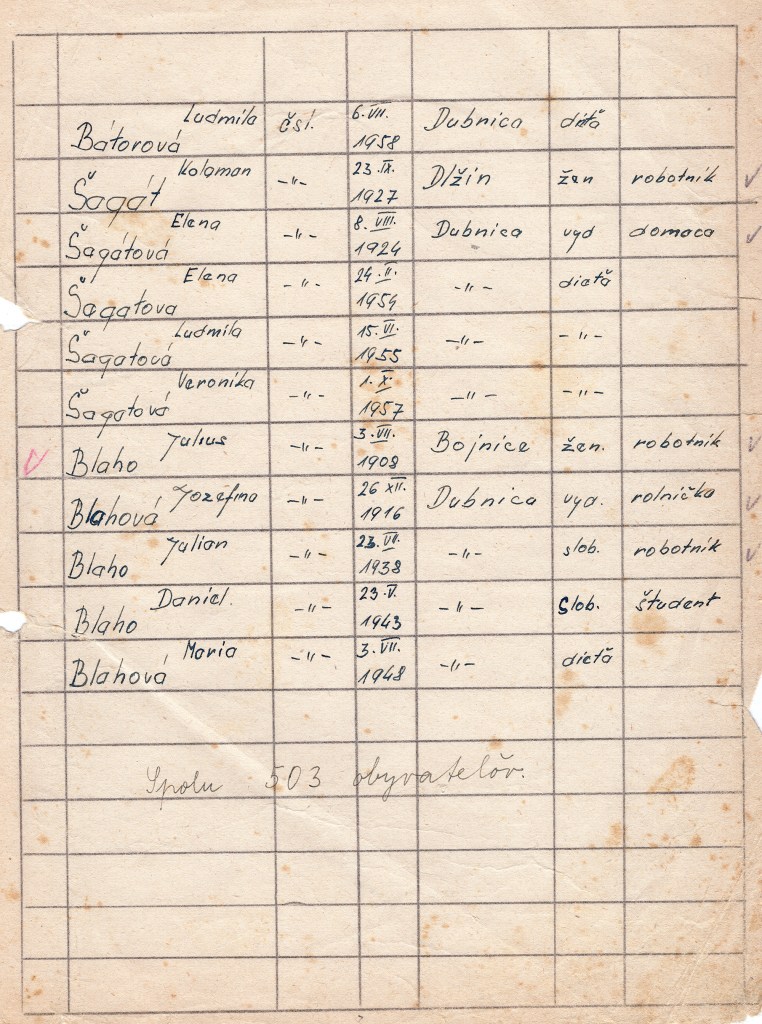 Bátorová Ludmila čsl. 6.VII. 1958 Dubnica dieťa
Šagát Koloman -"- 23.IX. 1927 Dlžin žen robotnik
Šagátová Elena -"- 8.VIII. 1924 Dubnica vyd domaca
Šagatova Elena -"- 24.II. 1954 -"- dieťa
Šagatová Ludmila -"- 15.VI. 1955 -"- -"-
Šagatová Veronika -"- 1.X. 1957 -"- -"-
Blaho Julius -"- 3.VII. 1908 Bojnice žen. robotnik
Blahová Jozefina -"- 26 XII. 1916 Dubnica vyd. rolnička
Blaho Julian -"- 23.VII. 1938 -"- slob. robotnik
Blaho Daniel. -"- 23.V. 1943 -"- Slob. študent
Blahová Maria -"- 3.VII. 1948 -"- dieťa
Spolu 503 obyvatelův.